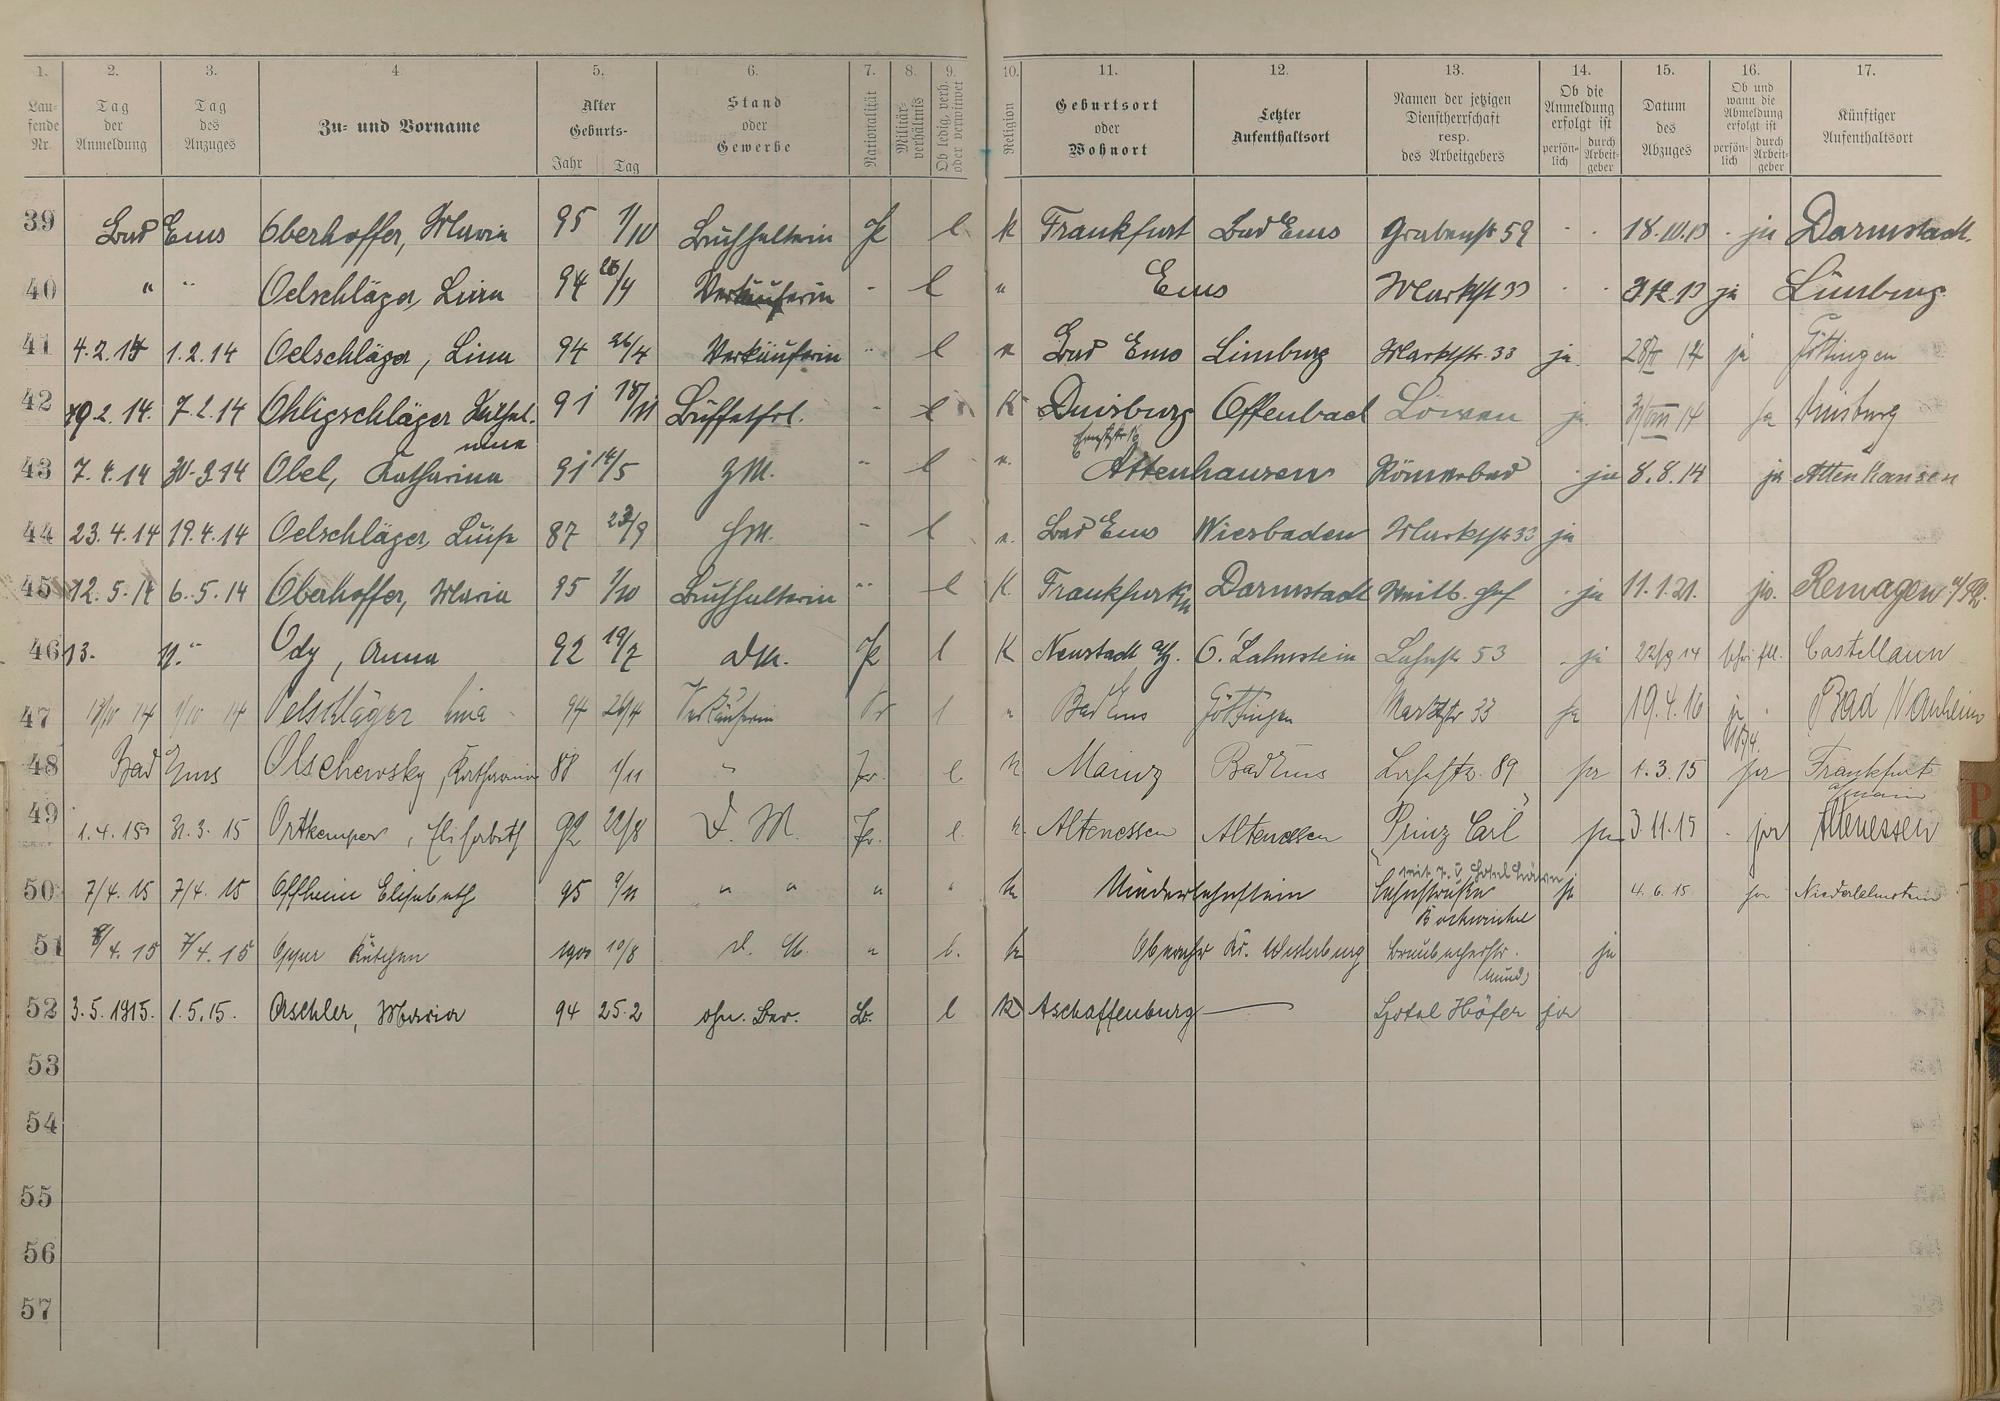 1. 2. 3. 4. 5. 6. 7. 8. 9. 10. 11. 12. 13. 14. 15. 16. 17.
Laufende Nr. Tag der Anmeldung Tag des Anzuges Zu- und Vorname Alter Geburts- Jahr Tag Stand oder Gewerbe Nationalität Militärverhältnis Ob ledig, verh. oder verwitwet Religion Geburtsort oder Wohnort Letzter Aufenthaltsort Namen der jetzigen Dienstherrschaft resp. des Arbeitgebers Ob die Anmeldung erfolgt ist persönlich durch Arbeitgeber Datum des Abzuges Ob und wann die Abmeldung erfolgt ist persönlich durch Arbeitgeber Künftiger Aufenthaltsort
39 Bad Ems Oberhoffer, Maria 95 1/10 Buchhalterin l. K Frankfurt Bad Ems Grabenstr 59 18.10.13 ja Darmstadt.
40 " " Oelschläger, Lina 94 26/4 Verkäuferin l " Ems Marktstr 33 ja Limburg
41 4.2.14 1.2.14 Oelschläger, Lina 94 26/4 Verkäuferin " l " Bad Ems Limburg Marktstr. 33 ja 14 ja Göttingen
42 9.2.14. 7.2.14 Ohligschläger 91 18/11 Buffetfrl. l K Duisburg Offenbach Löwen ja 31/VIII 14 ja Duisburg
43 7.4.14 30.3.14 Obel, Katharina 91 14/5 l " Attenhausen Römerbad ja 8.8.14 ja Attenhausen
44 23.4.14 19.4.14 Oelschläger, Luise 87 23/9 l ". Bad Ems Wiesbaden Marktstr 33 ja
45 12.5.14 6.5.14 Oberhoffer, Maria 95 1/10 Buchhalterin " l K. Frankfurt Darmstadt ja 11.1.21. ja. Remagen a/Rh.
46 13. 11. " Ody, Anna 92 19/7 l K Neustadt O. Lahnstein Lahnstr 53 ja 22/9 14 schriftl. Castellaun
47 13/10 14 1/10 14 Oelschläger Lina 94 26/4 Verkäuferin Pr l " Bad Ems Göttingen Marktstr 33 ja 19.4.16 ja Bad Nauheim
48 Bad Ems Olschewsky, Katharina 88 1/11 " Pr. l. K Mainz Bad Ems Lahnstr. 89 ja 1.3.15 ja Frankfurt a/Main
49 1.4.15 31.3.15 Ortkemper, Elisabeth 92 22/8 D. M. Pr. l. K. Altenessen Altenessen Prinz Carl ja 3.11.15 ja Altenessen
50 7/4.15 7/4.15 Offheim Elisabeth 95 9/11 " " " " k Niederlahnstein Lahnstraße ja 4.6.15 ja Niederlahnstein
51 8/4.15 7/4.15 Käthchen 1900 10/8 d. M. " l. k Kr. Westerburg Braubacherstr. ja
52 3.5.1915. 1.5.15. Oschler, Maria 94 25.2 ohn. Ber. l K Aschaffenburg — Hotel Höfer ja
53
54
55
56
57
P
Q
R
S